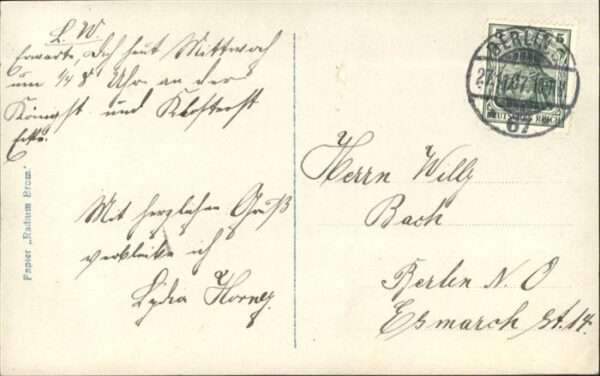 L. W.
Erwarte, Dich heut Mittwoch
um 1/4 8 Uhr an der
Königst und Klosterst
Ecke.
Mit herzlichen Gruß
verbleibe ich
Lydia Horney
Papier „Radium Brom."
BERLIN
DEUTSCHES REICH
5
67
Herrn Willy
Bach
Berlin N. O
Esmarch St. 14.